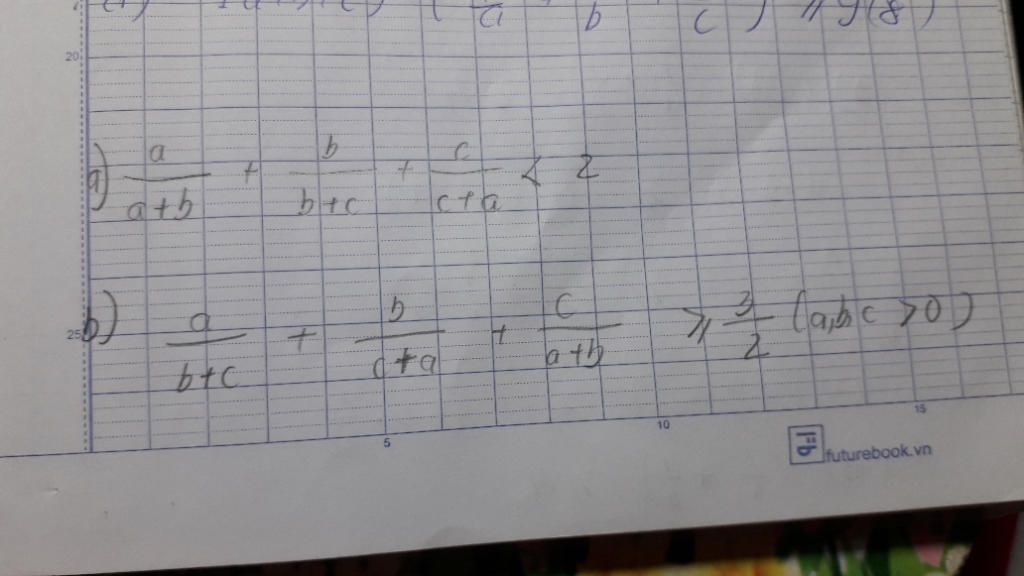 20
a) a/(a+b) + b/(b+c) + c/(c+a) < 2
25
b) a/(b+c) + b/(c+a) + c/(a+b) ≥ 3/2 (a,b,c >0)
5 10 15
futurebook.vn